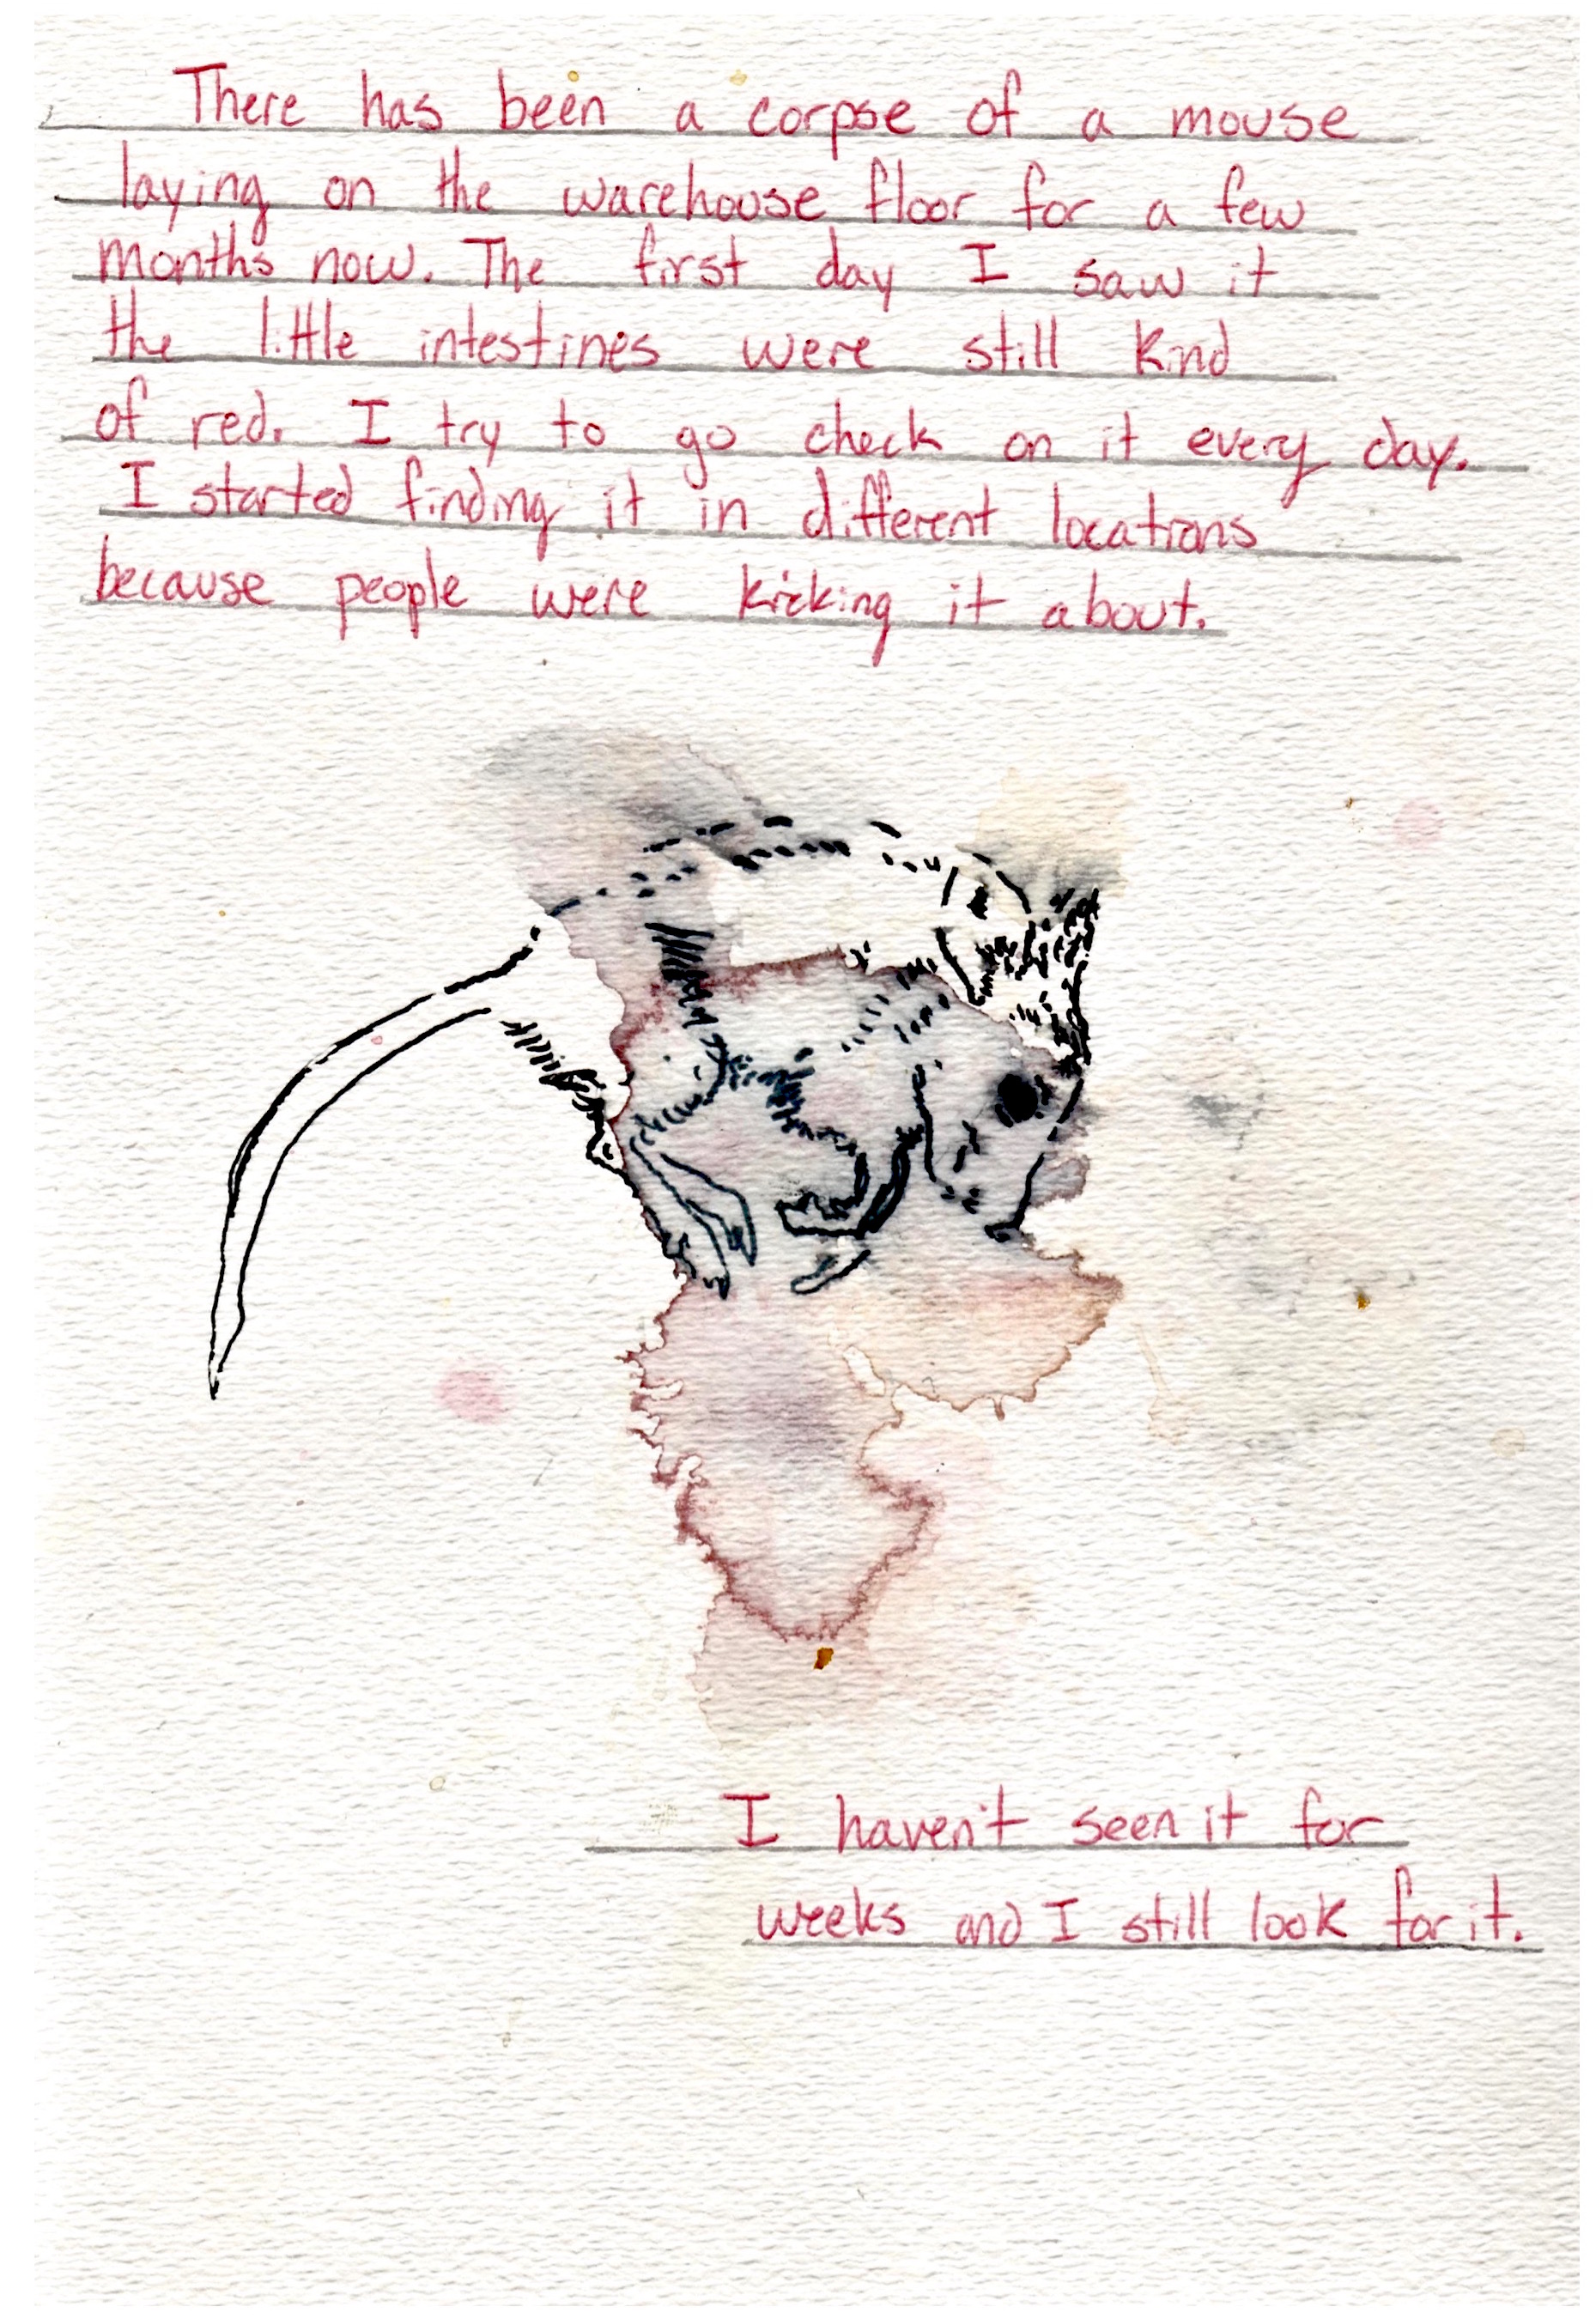 There has been a corpse of a mouse
laying on the warehouse floor for a few
months now. The first day I saw it
the little intestines were still kind
of red. I try to go check on it every day.
I started finding it in different locations
because people were kicking it about.
I haven't seen it for
weeks and I still look for it.